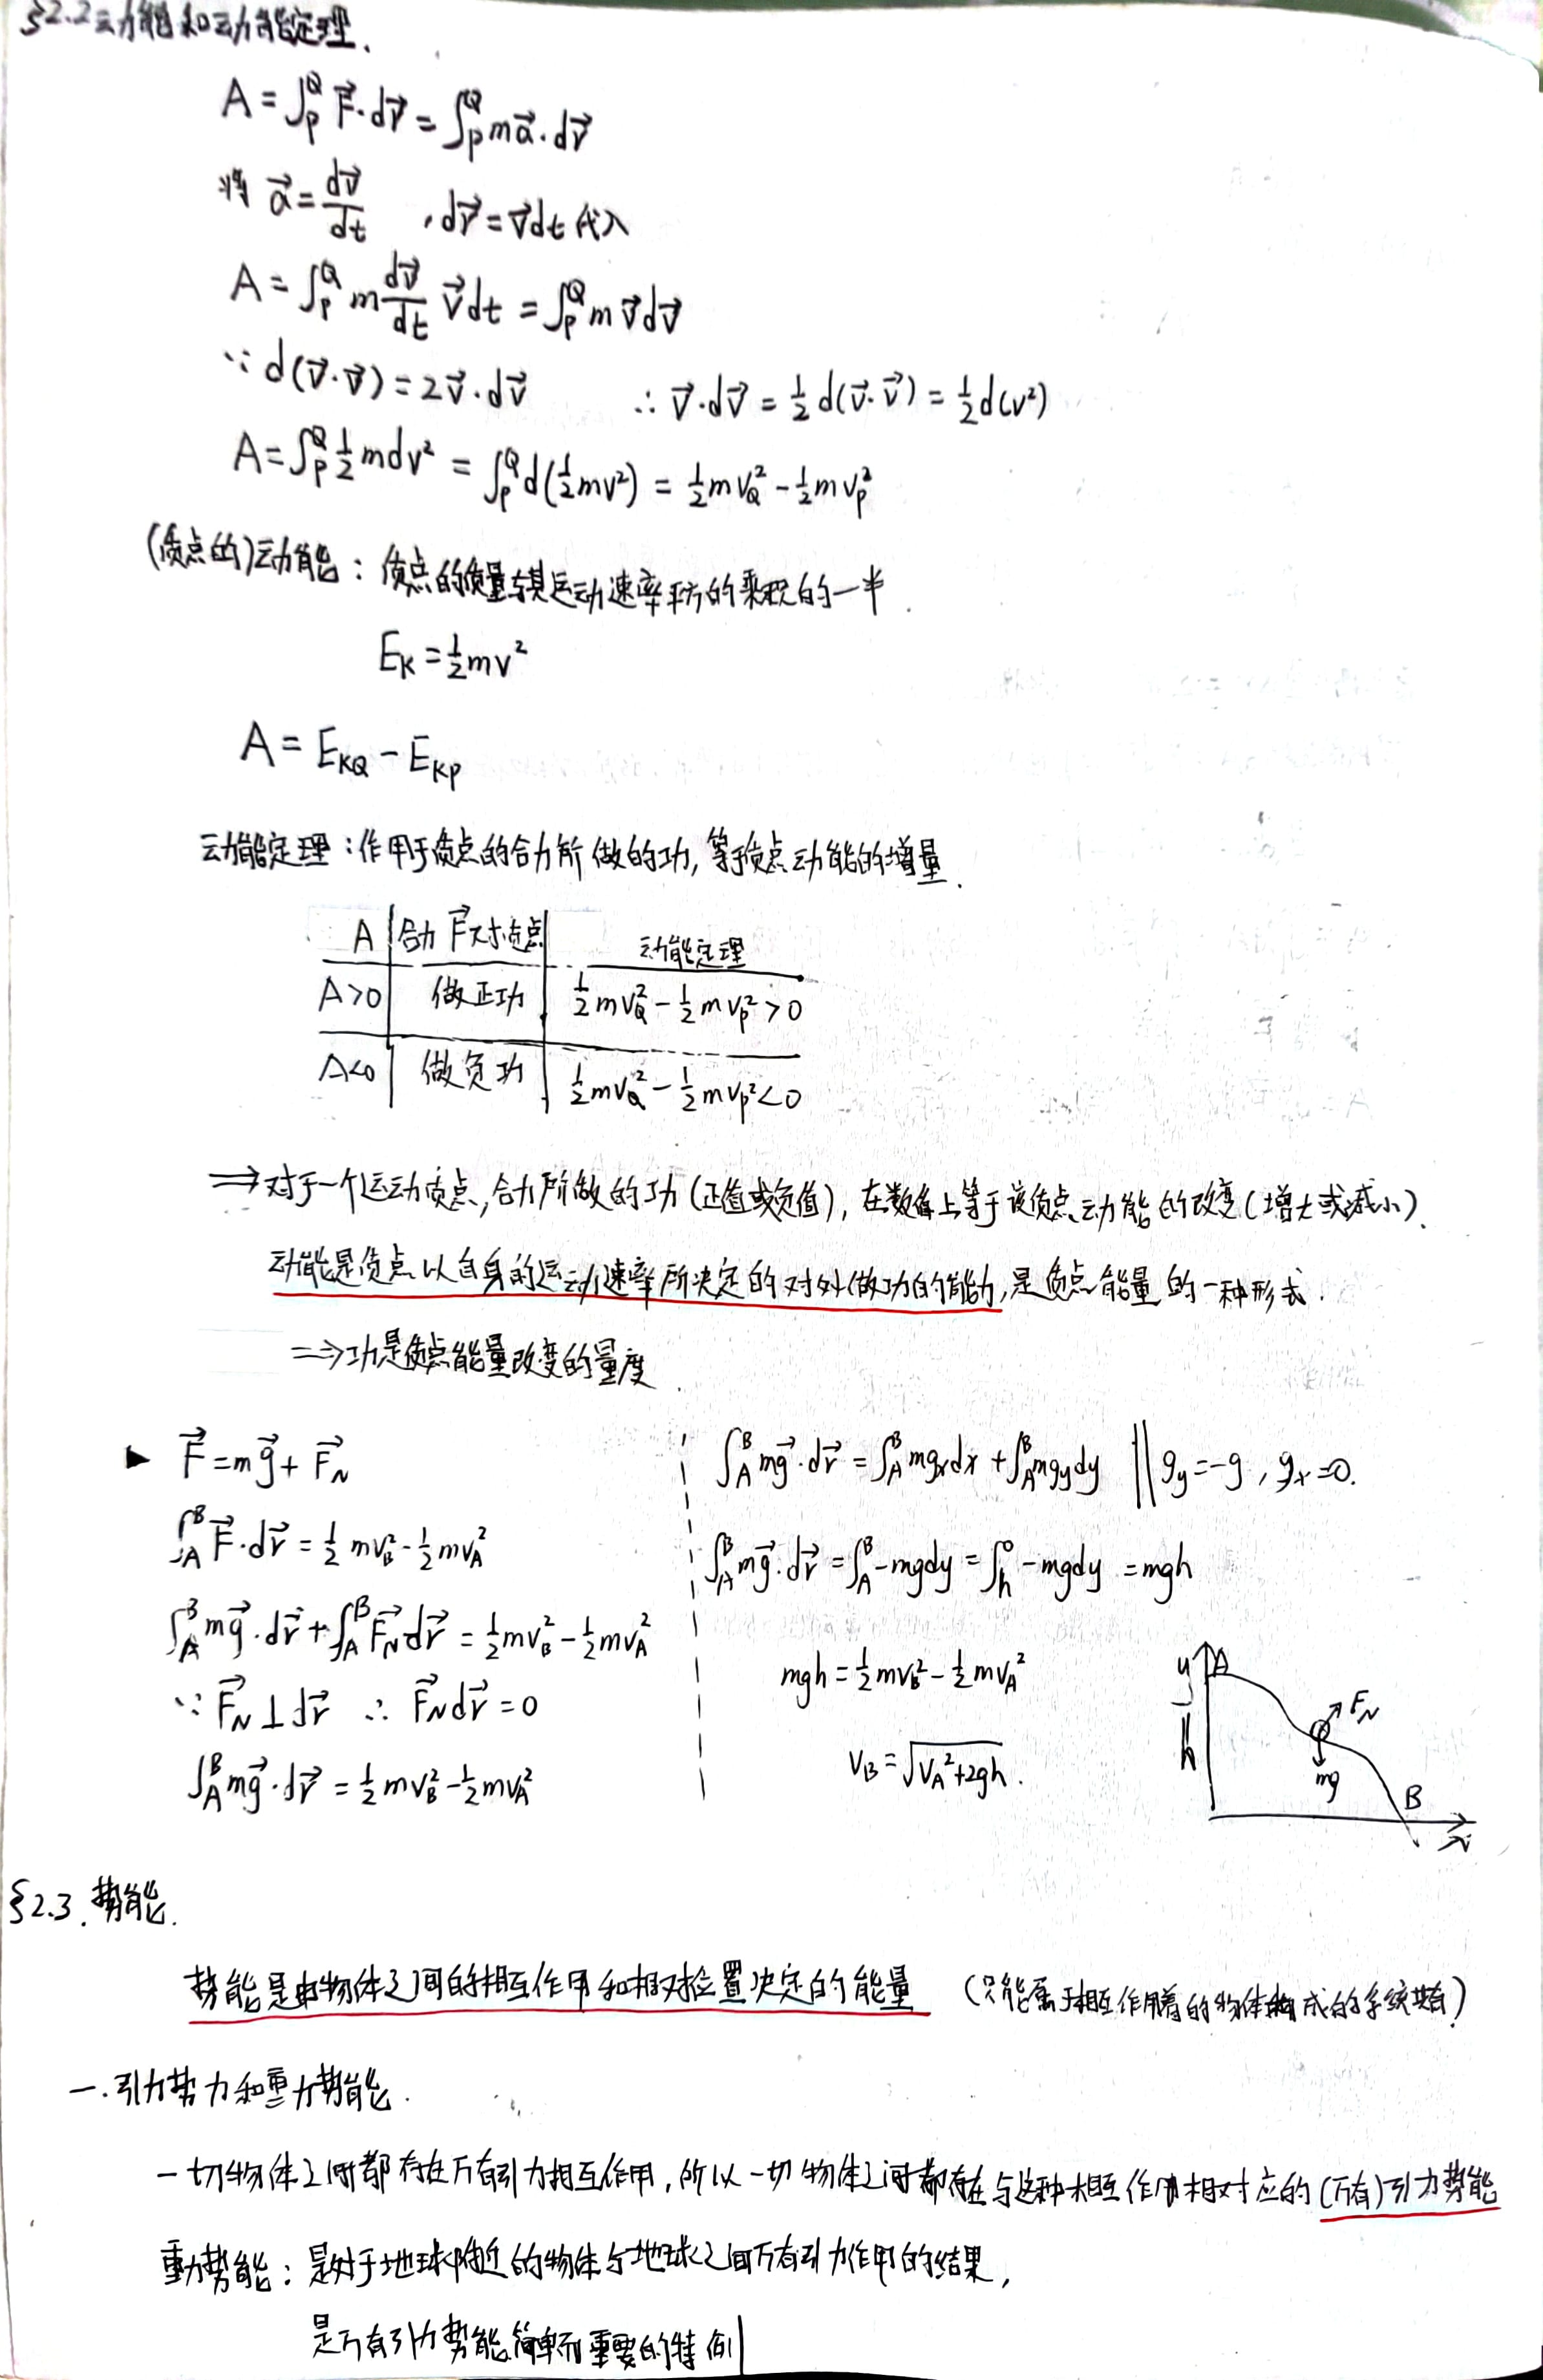 §2.2 动能和动能定理.
A = ∫_P^Q F⃗·dr⃗ = ∫_P^Q ma⃗·dr⃗
将 a⃗ = dv⃗/dt , dr⃗ = v⃗dt 代入
A = ∫_P^Q m dv⃗/dt v⃗dt = ∫_P^Q mv⃗dv⃗
∵ d(v⃗·v⃗) = 2v⃗·dv⃗ ∴ v⃗·dv⃗ = ½d(v⃗·v⃗) = ½d(v²)
A = ∫_P^Q ½mdv² = ∫_P^Q d(½mv²) = ½mv_Q² - ½mv_P²
(质点的)动能：质点的质量与其运动速率平方的乘积的一半.
E_K = ½mv²
A = E_KQ - E_KP
动能定理：作用于质点的合力所做的功, 等于质点动能的增量.
A 合力F⃗对质点 动能定理
A>0 做正功 ½mv_Q² - ½mv_P² > 0
A<0 做负功 ½mv_Q² - ½mv_P² < 0
⇒对于一个运动质点, 合力所做的功(正值或负值), 在数值上等于该质点动能的改变(增大或减小).
动能是质点以自身的运动速率所决定的对外做功的能力, 是质点能量的一种形式.
⇒功是质点能量改变的量度.
▶ F⃗ = mg⃗ + F⃗_N
∫_A^B F⃗·dr⃗ = ½mv_B² - ½mv_A²
∫_A^B mg⃗·dr⃗ + ∫_A^B F⃗_N dr⃗ = ½mv_B² - ½mv_A²
∵ F⃗_N ⊥ dr⃗ ∴ F⃗_N dr⃗ = 0
∫_A^B mg⃗·dr⃗ = ½mv_B² - ½mv_A²
∫_A^B mg⃗·dr⃗ = ∫_A^B mg_x dx + ∫_A^B mg_y dy ‖ g_y = -g , g_x = 0.
∫_A^B mg⃗·dr⃗ = ∫_A^B -mgdy = ∫_h^0 -mgdy = mgh
mgh = ½mv_B² - ½mv_A²
v_B = √(v_A²+2gh).
y A
F_N
h
mg
B
x
§2.3. 势能.
势能是由物体之间的相互作用和相对位置决定的能量 (只能属于相互作用着的物体构成的系统共有)
一. 引力势力和重力势能.
一切物体之间都存在万有引力相互作用, 所以一切物体之间都存在与这种相互作用相对应的(万有)引力势能
重力势能：是对于地球附近的物体与地球之间万有引力作用的结果,
是万有引力势能简单而重要的特例